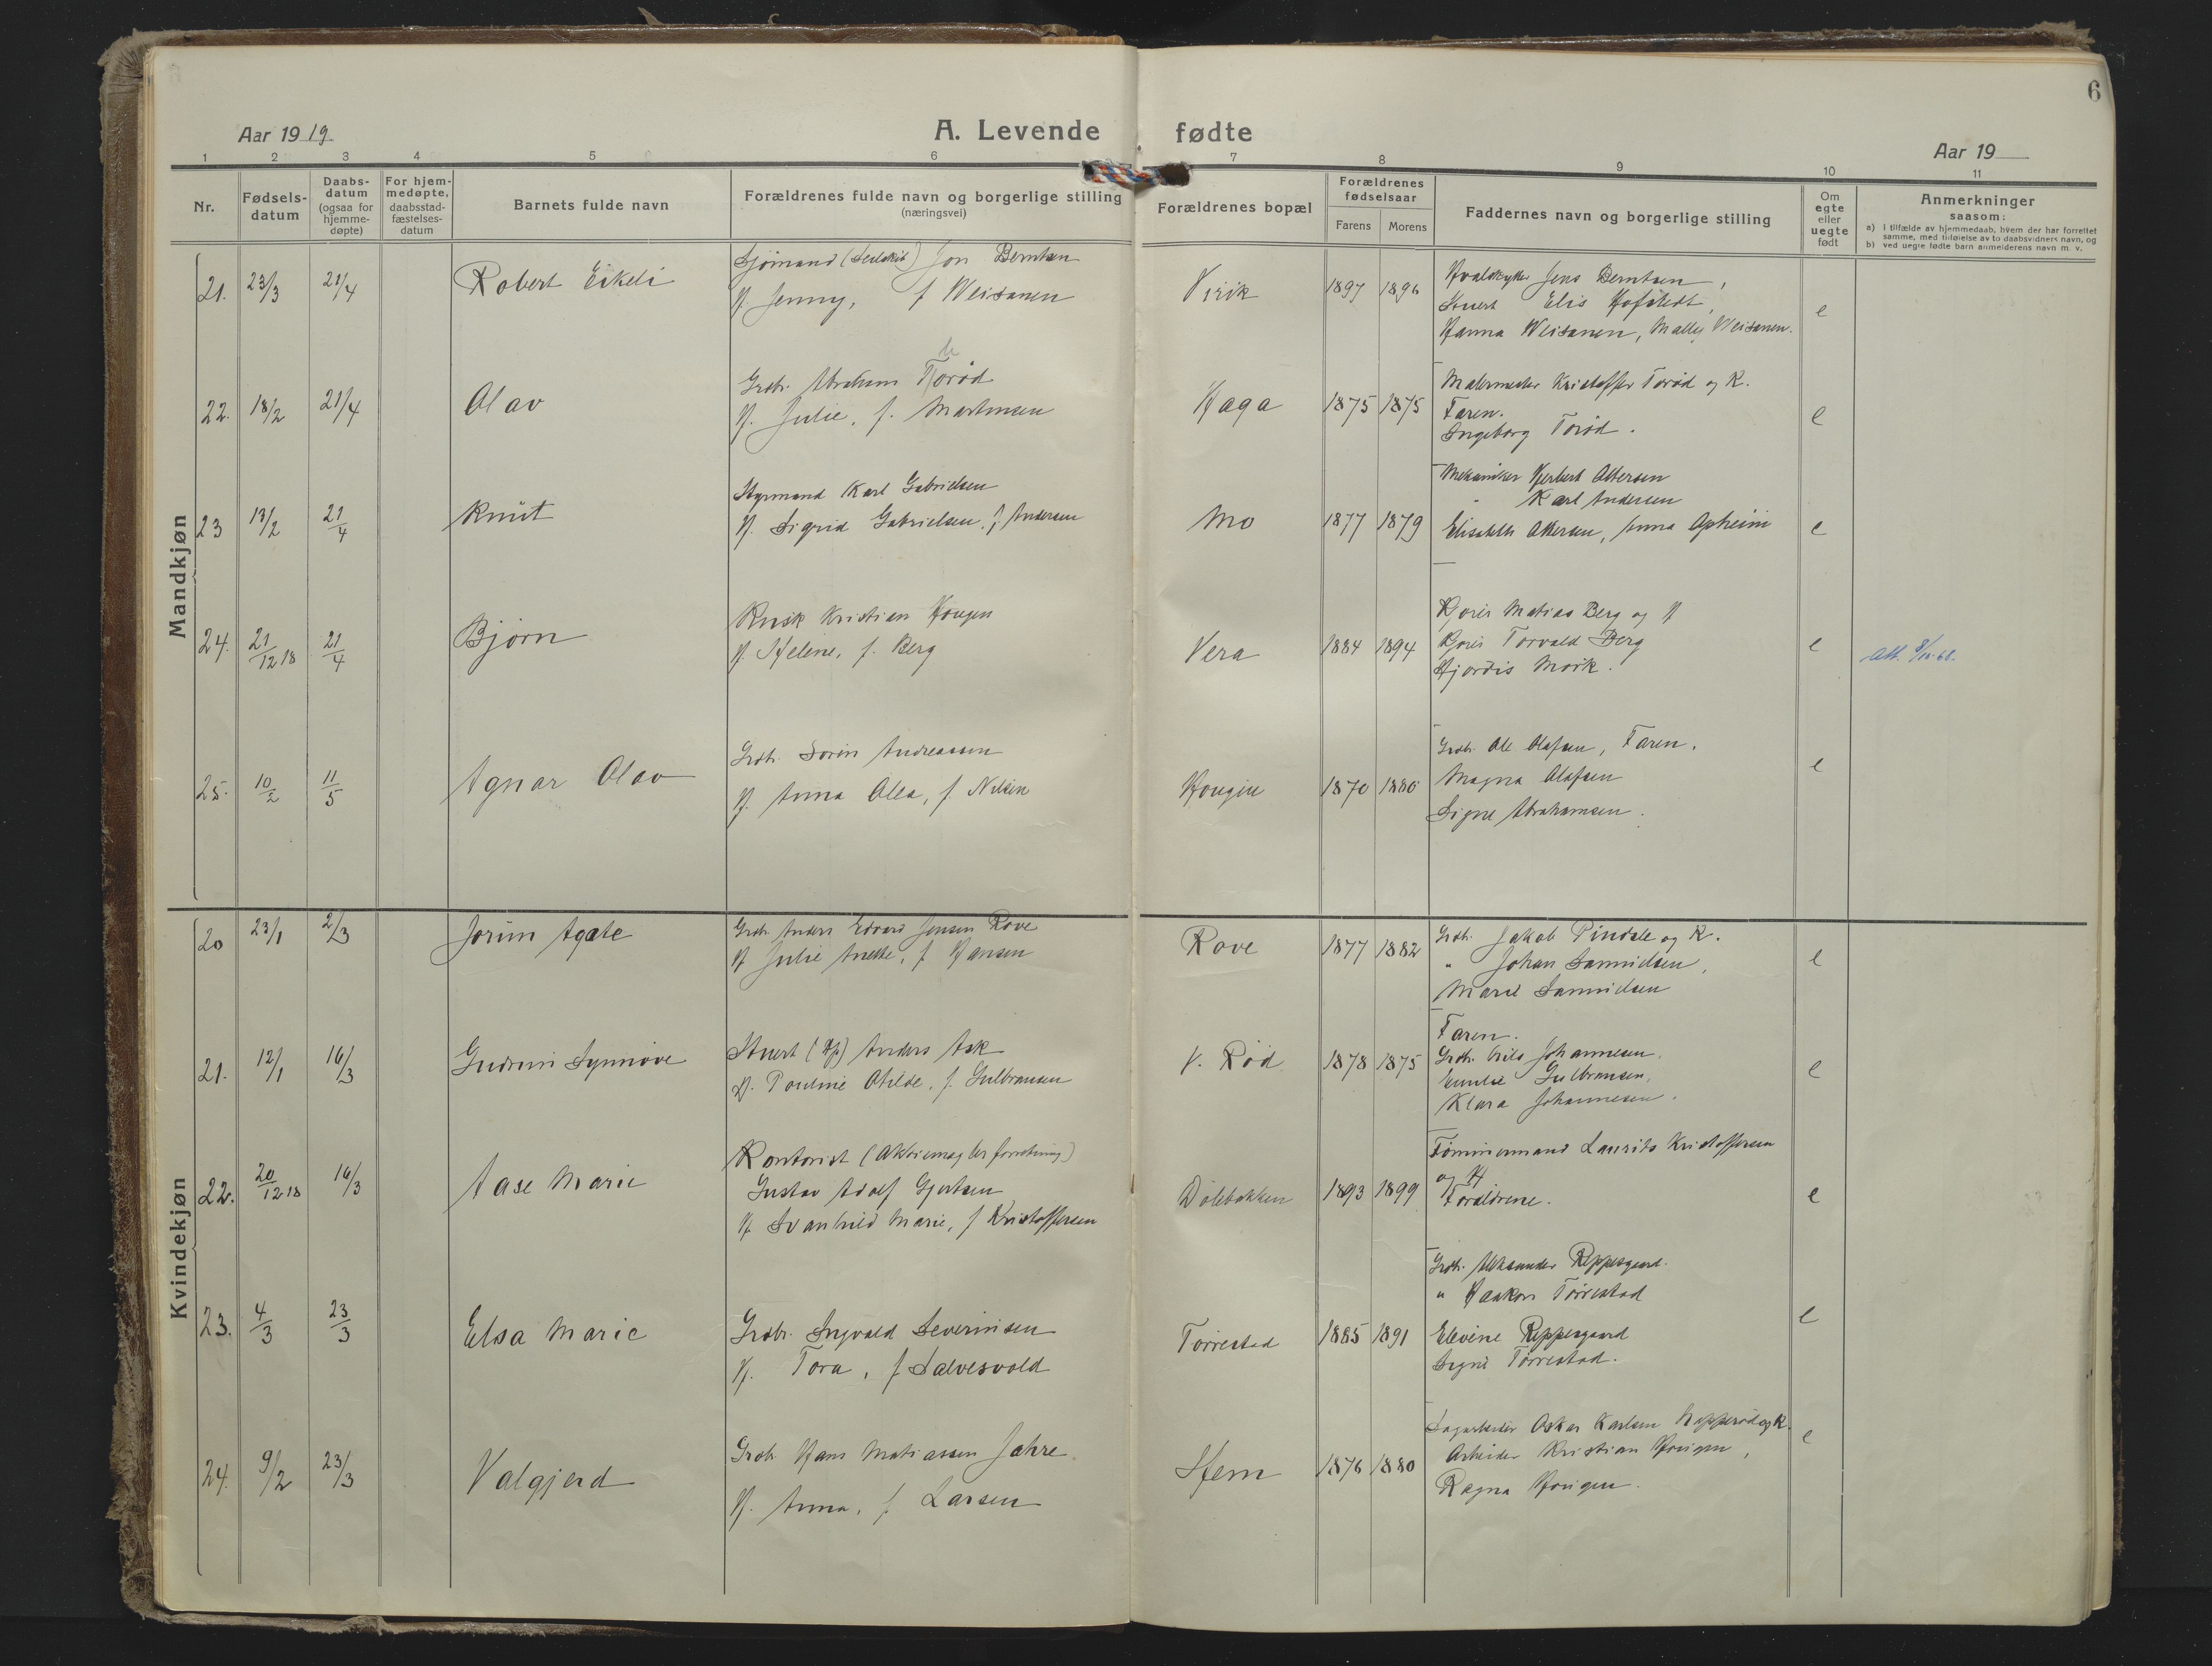 6
Aar 1919
A. Levende fødte
Aar 19
1 2 3 4 5 6 7 8 9 10 11
Nr.
Fødsels-
datum
Daabs-
datum
(ogsaa for
hjemme-
døpte)
For hjem-
medøpte,
daabsstad-
fæstelses-
datum
Barnets fulde navn
Forældrenes fulde navn og borgerlige stilling
(næringsvei)
Forældrenes bopæl
Forældrenes
fødselsaar
Farens Morens
Faddernes navn og borgerlige stilling
Om
egte
eller
uegte
født
Anmerkninger
saasom:
a) i tilfælde av hjemmedaab, hvem der har forrettet
samme, med tilføielse av to daabsvidners navn, og
b) ved uegte fødte barn anmelderens navn m. v.
Mandkjøn
21. 23/3 21/4 Robert Eikeli
Sjømand (Seilskib) Jon Berntsen
H. Jenny, f Weisanen
Virik 1897 1896
Hvalskytter Jens Berntsen,
Stuert Elis Hofstedt,
Hanna Weisanen, Mally Weisanen.
e
22. 18/2 21/4 Olav
Grdbr. Abraham Torød
H. Julie, f. Martinsen
Haga 1875 1875
Malermester Kristoffer Torød og K.
Faren.
Ingeborg Torød.
e
23 13/2 21/4 Knut
Styrmand Karl Gabrielsen
H. Sigrid Gabrielsen, f. Andersen
Mo 1877 1879
Mekaniker Herbert Attersen
" Karl Andersen
Elisabeth Attersen, Anna Apheim
e
24. 21/12 18 21/4 Bjørn
Kusk Kristian Hougen
H. Helene, f. Berg
Vera 1884 1894
Kjører Matias Berg og H
Kjører Torvald Berg
Hjørdis Mørk.
e
Att. 8/11-68.
25. 10/2 11/5 Agnar Olav
Grdbr. Sørin Andreassen
H. Anna Olea, f. Nilsen
Hougen 1870 1880
Grdbr. Ole Olafsen, Faren.
Magna Olafsen
Signe Abrahamsen.
e
Kvindekjøn
20 23/1 2/3 Jorun Agate
Grdbr. Anders Edvard Jensen Rove
H Julie Anette, f Hansen
Rove 1877 1882
Grdbr. Jakob Pindsle og K.
" Johan Samuelsen,
Marie Samuelsen
e
21. 12/1 16/3 Gudrun Synnøve
Stuert (Dp) Anders Ask
H. Pauline Otilde, f. Gulbransen
V. Rød 1878 1875
Faren.
Grdbr. Nils Johannesen.
Emilie Gulbransen,
Klara Johannesen.
e
22. 20/12 18 16/3 Aase Marie
Kontorist (Aktiemægler forretning)
Gustav Adolf Gjertsen
H. Svanhild Marie, f Kristoffersen
Dølebakken 1893 1899
Tømmermand Laurits Kristoffersen
og H
Forældrene.
e
23. 4/3 23/3 Elsa Marie
Grdbr. Ingvald Severinsen
H. Tora, f Salvesvold
Tørrestad 1885 1891
Grdbr. Aleksander Reppesgaard.
" Haakon Tørrestad
Elevine Reppesgaard
Signe Tørrestad.
e
24. 9/2 23/3 Valgjerd
Grdbr. Hans Matiassen Jahre
H. Anna, f Larsen
Hem 1876 1880
Sagarbeider Oskar Karlsen Napperød og K.
Arbeider Kristian Hougen,
Ragna Hougen.
e